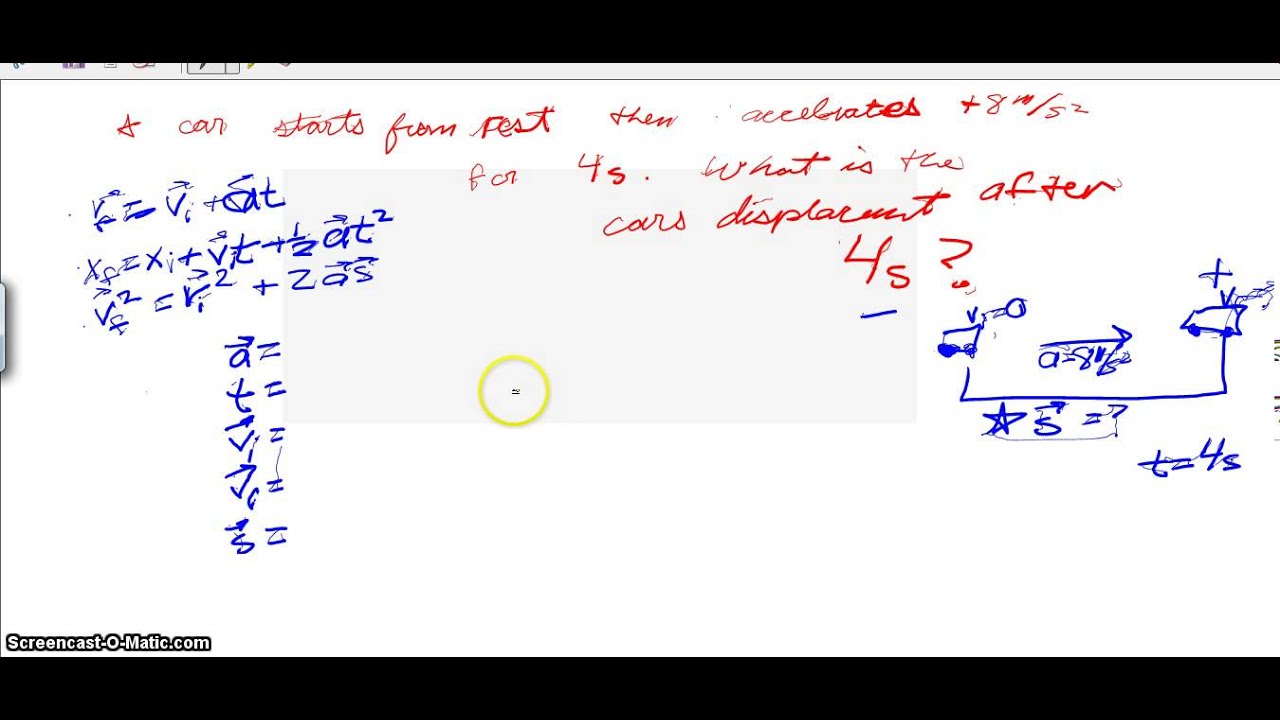 A car starts from rest then accelerates +8 m/s²
for 4s. What is the
cars displacment after
4s ?
v⃗f = v⃗i + a⃗t
xf = xi + v⃗it + ½ a⃗t²
v⃗f² = v⃗i² + 2a⃗s⃗
a⃗ =
t =
v⃗i =
v⃗f =
s⃗ =
+
vi = 0
a = 8 m/s²
☆ s⃗ = ?
t = 4s
Screencast-O-Matic.com